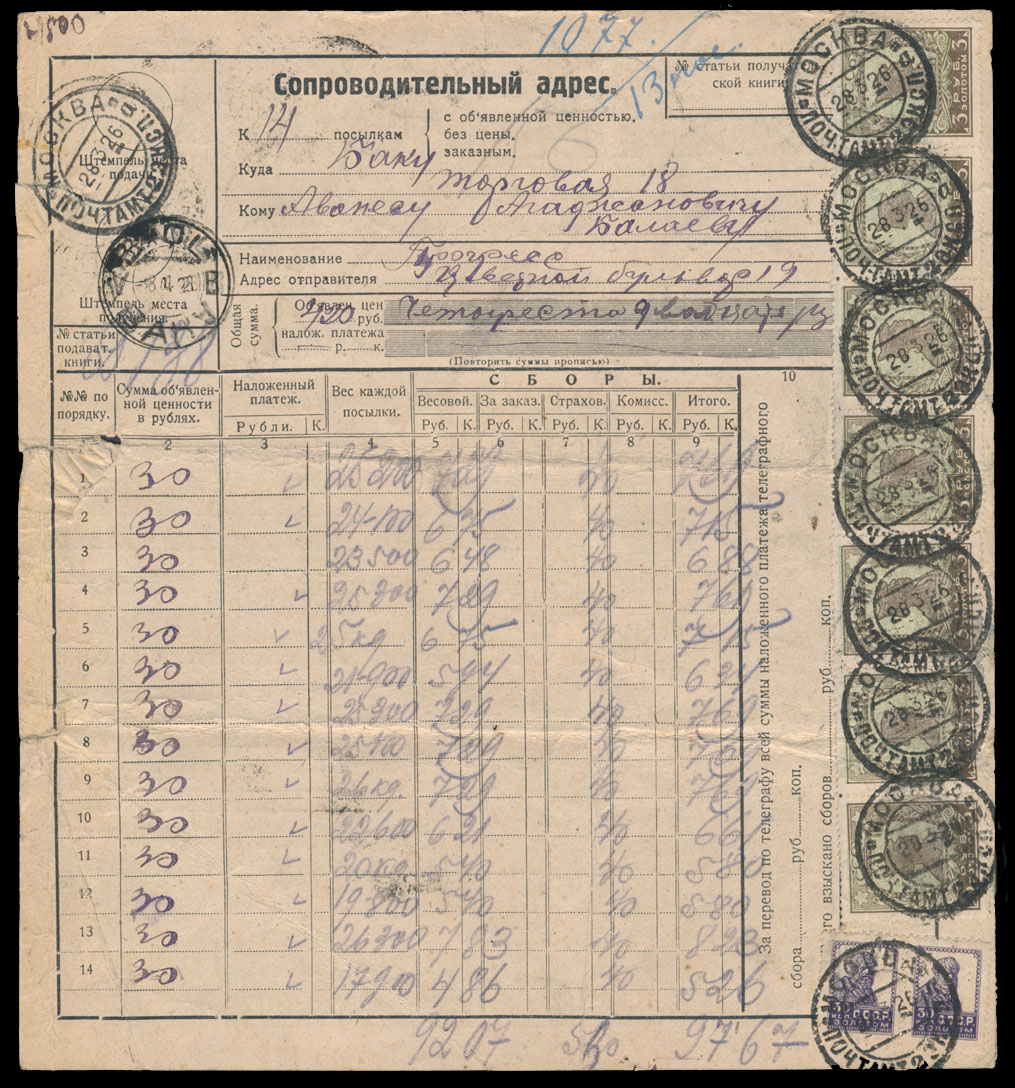 1077.
Сопроводительный адрес.
№ статьи получа-
ской книги
13
К 14 посылкам
с об'явленной ценностью.
без цены.
заказным.
Куда Баку
торговая 18
Кому Аванесу Агаджановичу
Балаеву
Штемпель места
подачи.
МОСКВА
28 3 26
ПОЧТАМТ
Наименование Прогресс
Адрес отправителя Цветной бульвар 19
Штемпель места
получения.
БАКУ
Общая сумма.
Об'явлен. цен
420 руб. Четыреста двадцать р
налож. платежа
— р. — к.
(Повторить суммы прописью)
№ статьи
подават.
книги.
№№ по порядку.
Сумма об'явлен-
ной ценности
в рублях.
Наложенный
платеж.
Рубли. К.
Вес каждой
посылки.
СБОРЫ.
Весовой. За заказ. Страхов. Комисс. Итого.
Руб. К. Руб. К. Руб. К. Руб. К. Руб. К.
10
2 3 4 5 6 7 8 9
1 30 40
2 30 24100 6 75 40 7 15
3 30 23500 6 48 40 6 88
4 30 25200 7 29 40 7 69
5 30 25кg 6 75 40 7 15
6 30 21900 5 94 40
7 30 25200 7 29 40 7 69
8 30 25100 7 29 40 7 69
9 30 26кg. 7 29 40 7 69
10 30 22600 6 21 40 6 61
11 30 20кg 5 40 40 5 80
12 30 19800 5 40 40 5 80
13 30 26200 7 83 40 8 23
14 30 17900 4 86 40 5 26
9207 560 9767
За перевод по телеграфу всей суммы наложенного платежа телеграфного
сбора руб. коп.
го взыскано сборов руб. коп.
МОСКВА
28 3 26
ПОЧТАМТ
3 РУБ. 3
ЗОЛОТОМ
МОСКВА
28 3 26
ПОЧТАМТ
МОСКВА
28 3 26
ПОЧТАМТ
МОСКВА
ПОЧТАМТ
3 РУБ. 3
28 3 26
ПОЧТАМТ
28 3 26
ПОЧТАМТ
МОСКВА
ПОЧТАМТ
МОСКВА
ПОЧТАМТ
ЗОЛОТОМ
30 СССР
ЗОЛОТОМ